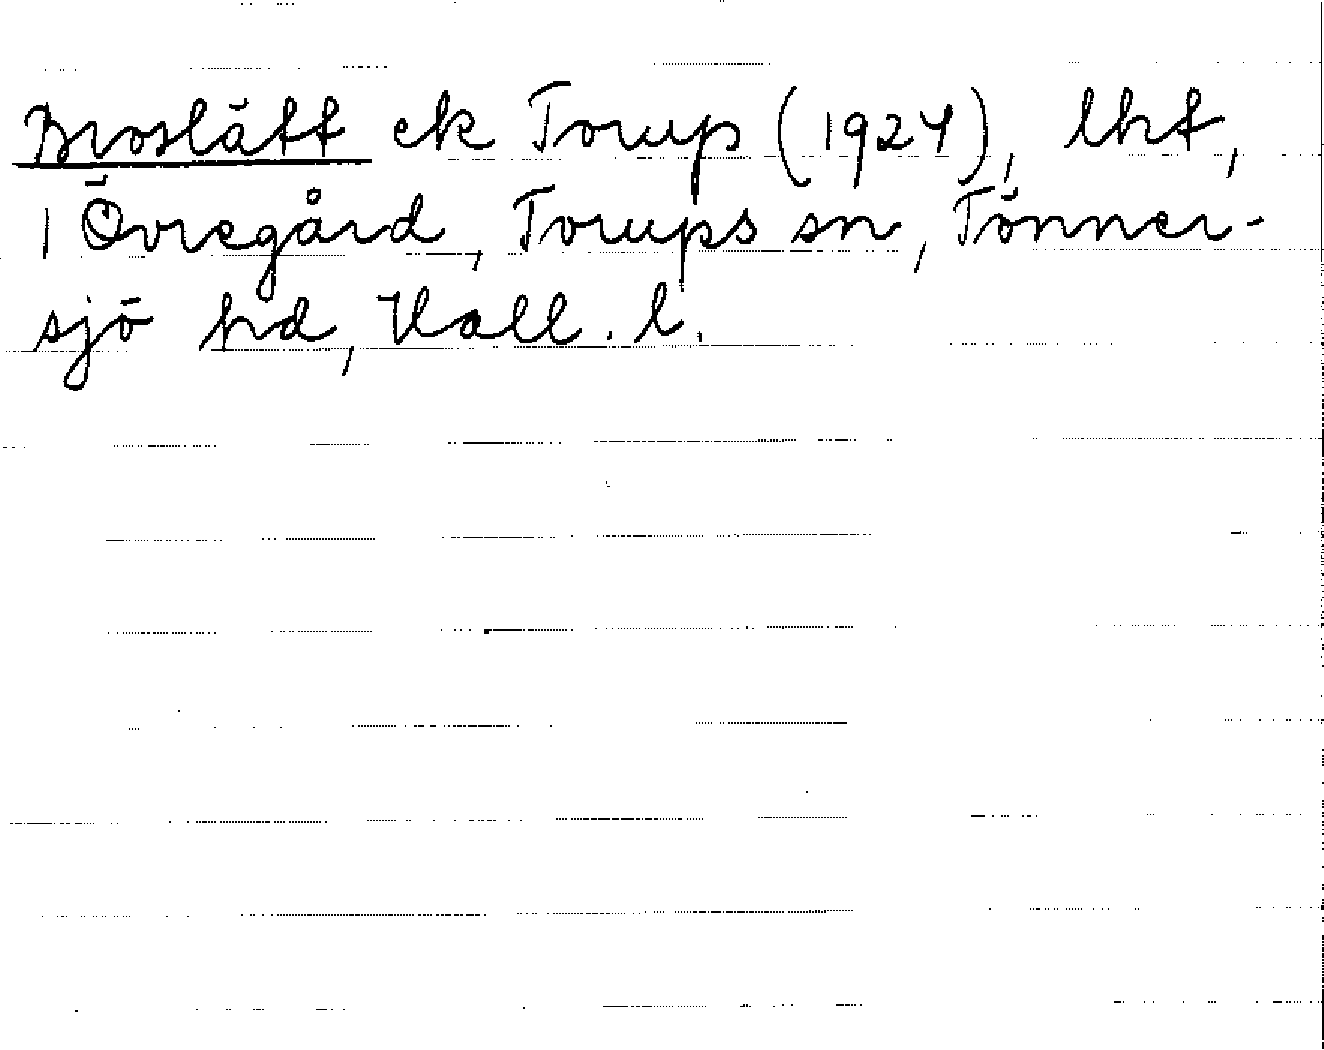 Broslätt ek Torup (1924), lht,
1 Övregård, Torups sn, Tönner-
sjö hd, Hall. l.